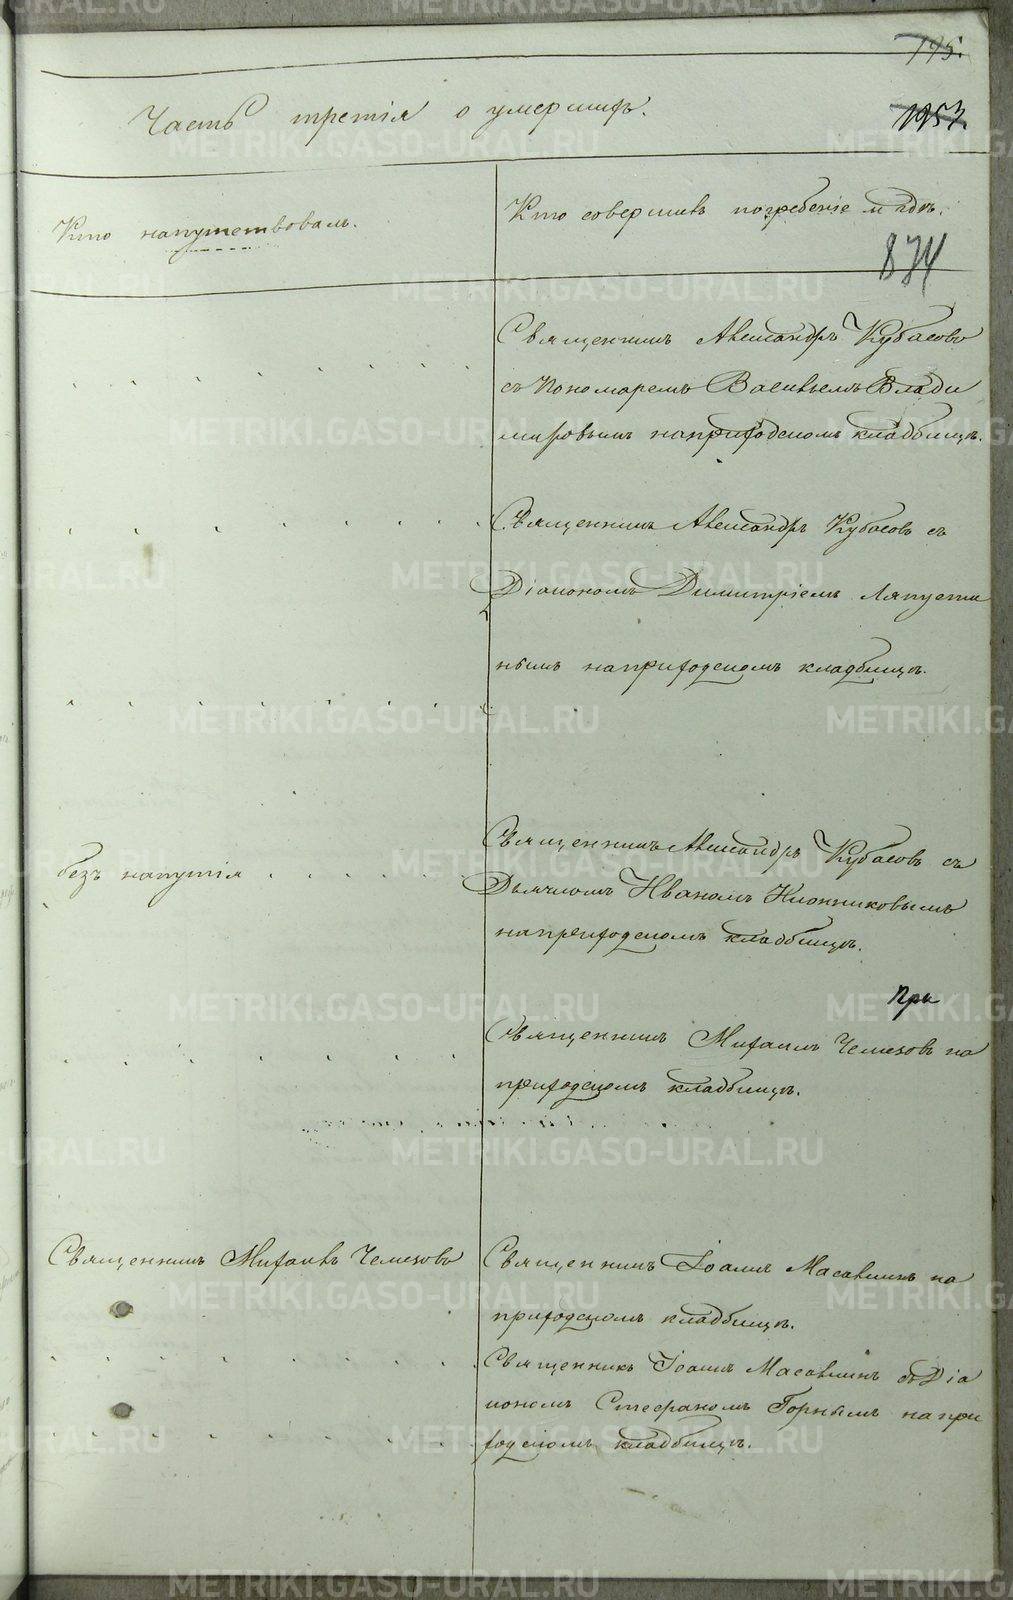 195.
Часть третія о умершихъ.
1953.
Кто напутствовалъ.
Кто совершалъ погребеніе и гдѣ.
874
Священникъ Александръ Кубасовъ
съ Пономаремъ Васильемъ Влади
мировымъ на приходскомъ кладбищѣ.
Священникъ Александръ Кубасовъ съ
Діакономъ Димитріемъ Ляпусти
нымъ на приходскомъ кладбищѣ.
безъ напутія
Священникъ Александръ Кубасовъ съ
Дьячкомъ Иваномъ
на приходскомъ кладбищѣ.
При
Священникъ Михаилъ Чемезовъ на
приходскомъ кладбищѣ.
Священникъ Михаилъ Чемезовъ
Священникъ Іоаннъ на
приходскомъ кладбищѣ.
Священникъ Іоаннъ съ Діа
кономъ Стефаномъ Горнымъ на при
ходскомъ кладбищѣ.
METRIKI.GASO-URAL.RU